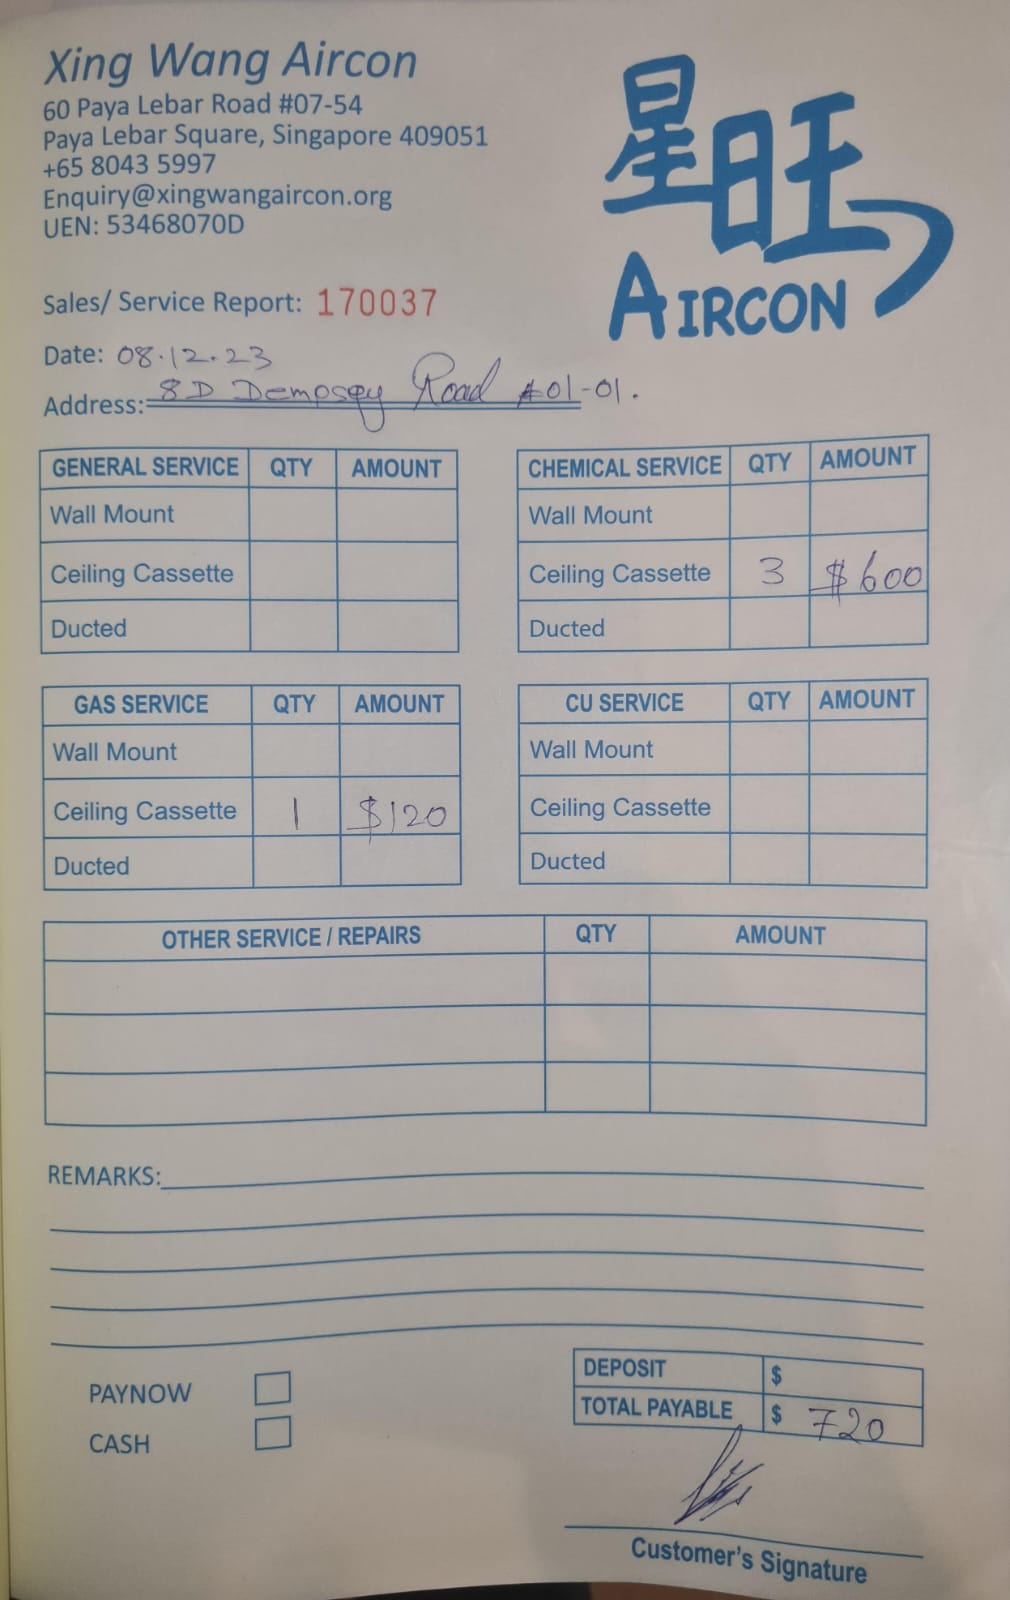 Xing Wang Aircon
60 Paya Lebar Road #07-54
Paya Lebar Square, Singapore 409051
+65 8043 5997
Enquiry@xingwangaircon.org
UEN: 53468070D
星旺
AIRCON
Sales/ Service Report: 170037
Date: 08.12.23
Address: 8D Dempsey Road #01-01.
GENERAL SERVICE QTY AMOUNT
Wall Mount
Ceiling Cassette
Ducted
CHEMICAL SERVICE QTY AMOUNT
Wall Mount
Ceiling Cassette 3 $600
Ducted
GAS SERVICE QTY AMOUNT
Wall Mount
Ceiling Cassette 1 $120
Ducted
CU SERVICE QTY AMOUNT
Wall Mount
Ceiling Cassette
Ducted
OTHER SERVICE / REPAIRS QTY AMOUNT
REMARKS:
PAYNOW
CASH
DEPOSIT $
TOTAL PAYABLE $ 720
Customer's Signature